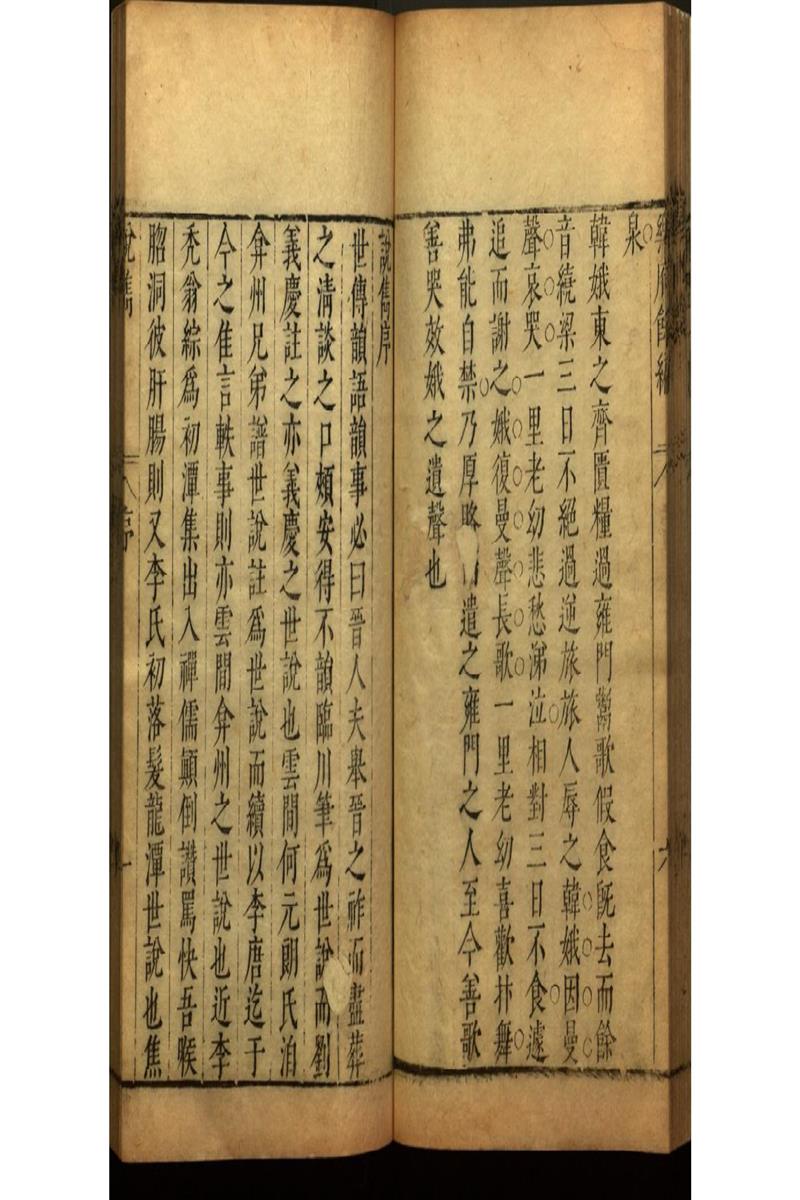 泉
韓娥東之齊匱糧過雍門鬻歌假食旣去而餘
音繞梁三日不絕過逆旅旅人辱之韓娥因曼
聲哀哭一里老幼悲愁涕泣相對三日不食遽
追而謝之娥復曼聲長歌一里老幼喜歡抃舞
弗能自禁乃厚賂 遣之雍門之人至今善歌
善哭效娥之遺聲也
說雋序
世傳韻語韻事必曰晉人夫舉晉之祚而盡葬
之淸談之口頰安得不韻臨川筆爲世說而劉
義慶註之亦義慶之世說也雲間何元朗氏洎
弇州兄弟譜世說註爲世說而續以李唐迄于
今之隹言軼事則亦雲間弇州之世說也近李
禿翁綜爲初潭集出入禪儒顚倒讚罵快吾喉
䐃洞彼肝腸則又李氏初落髮龍潭世說也焦
說雋 序 一